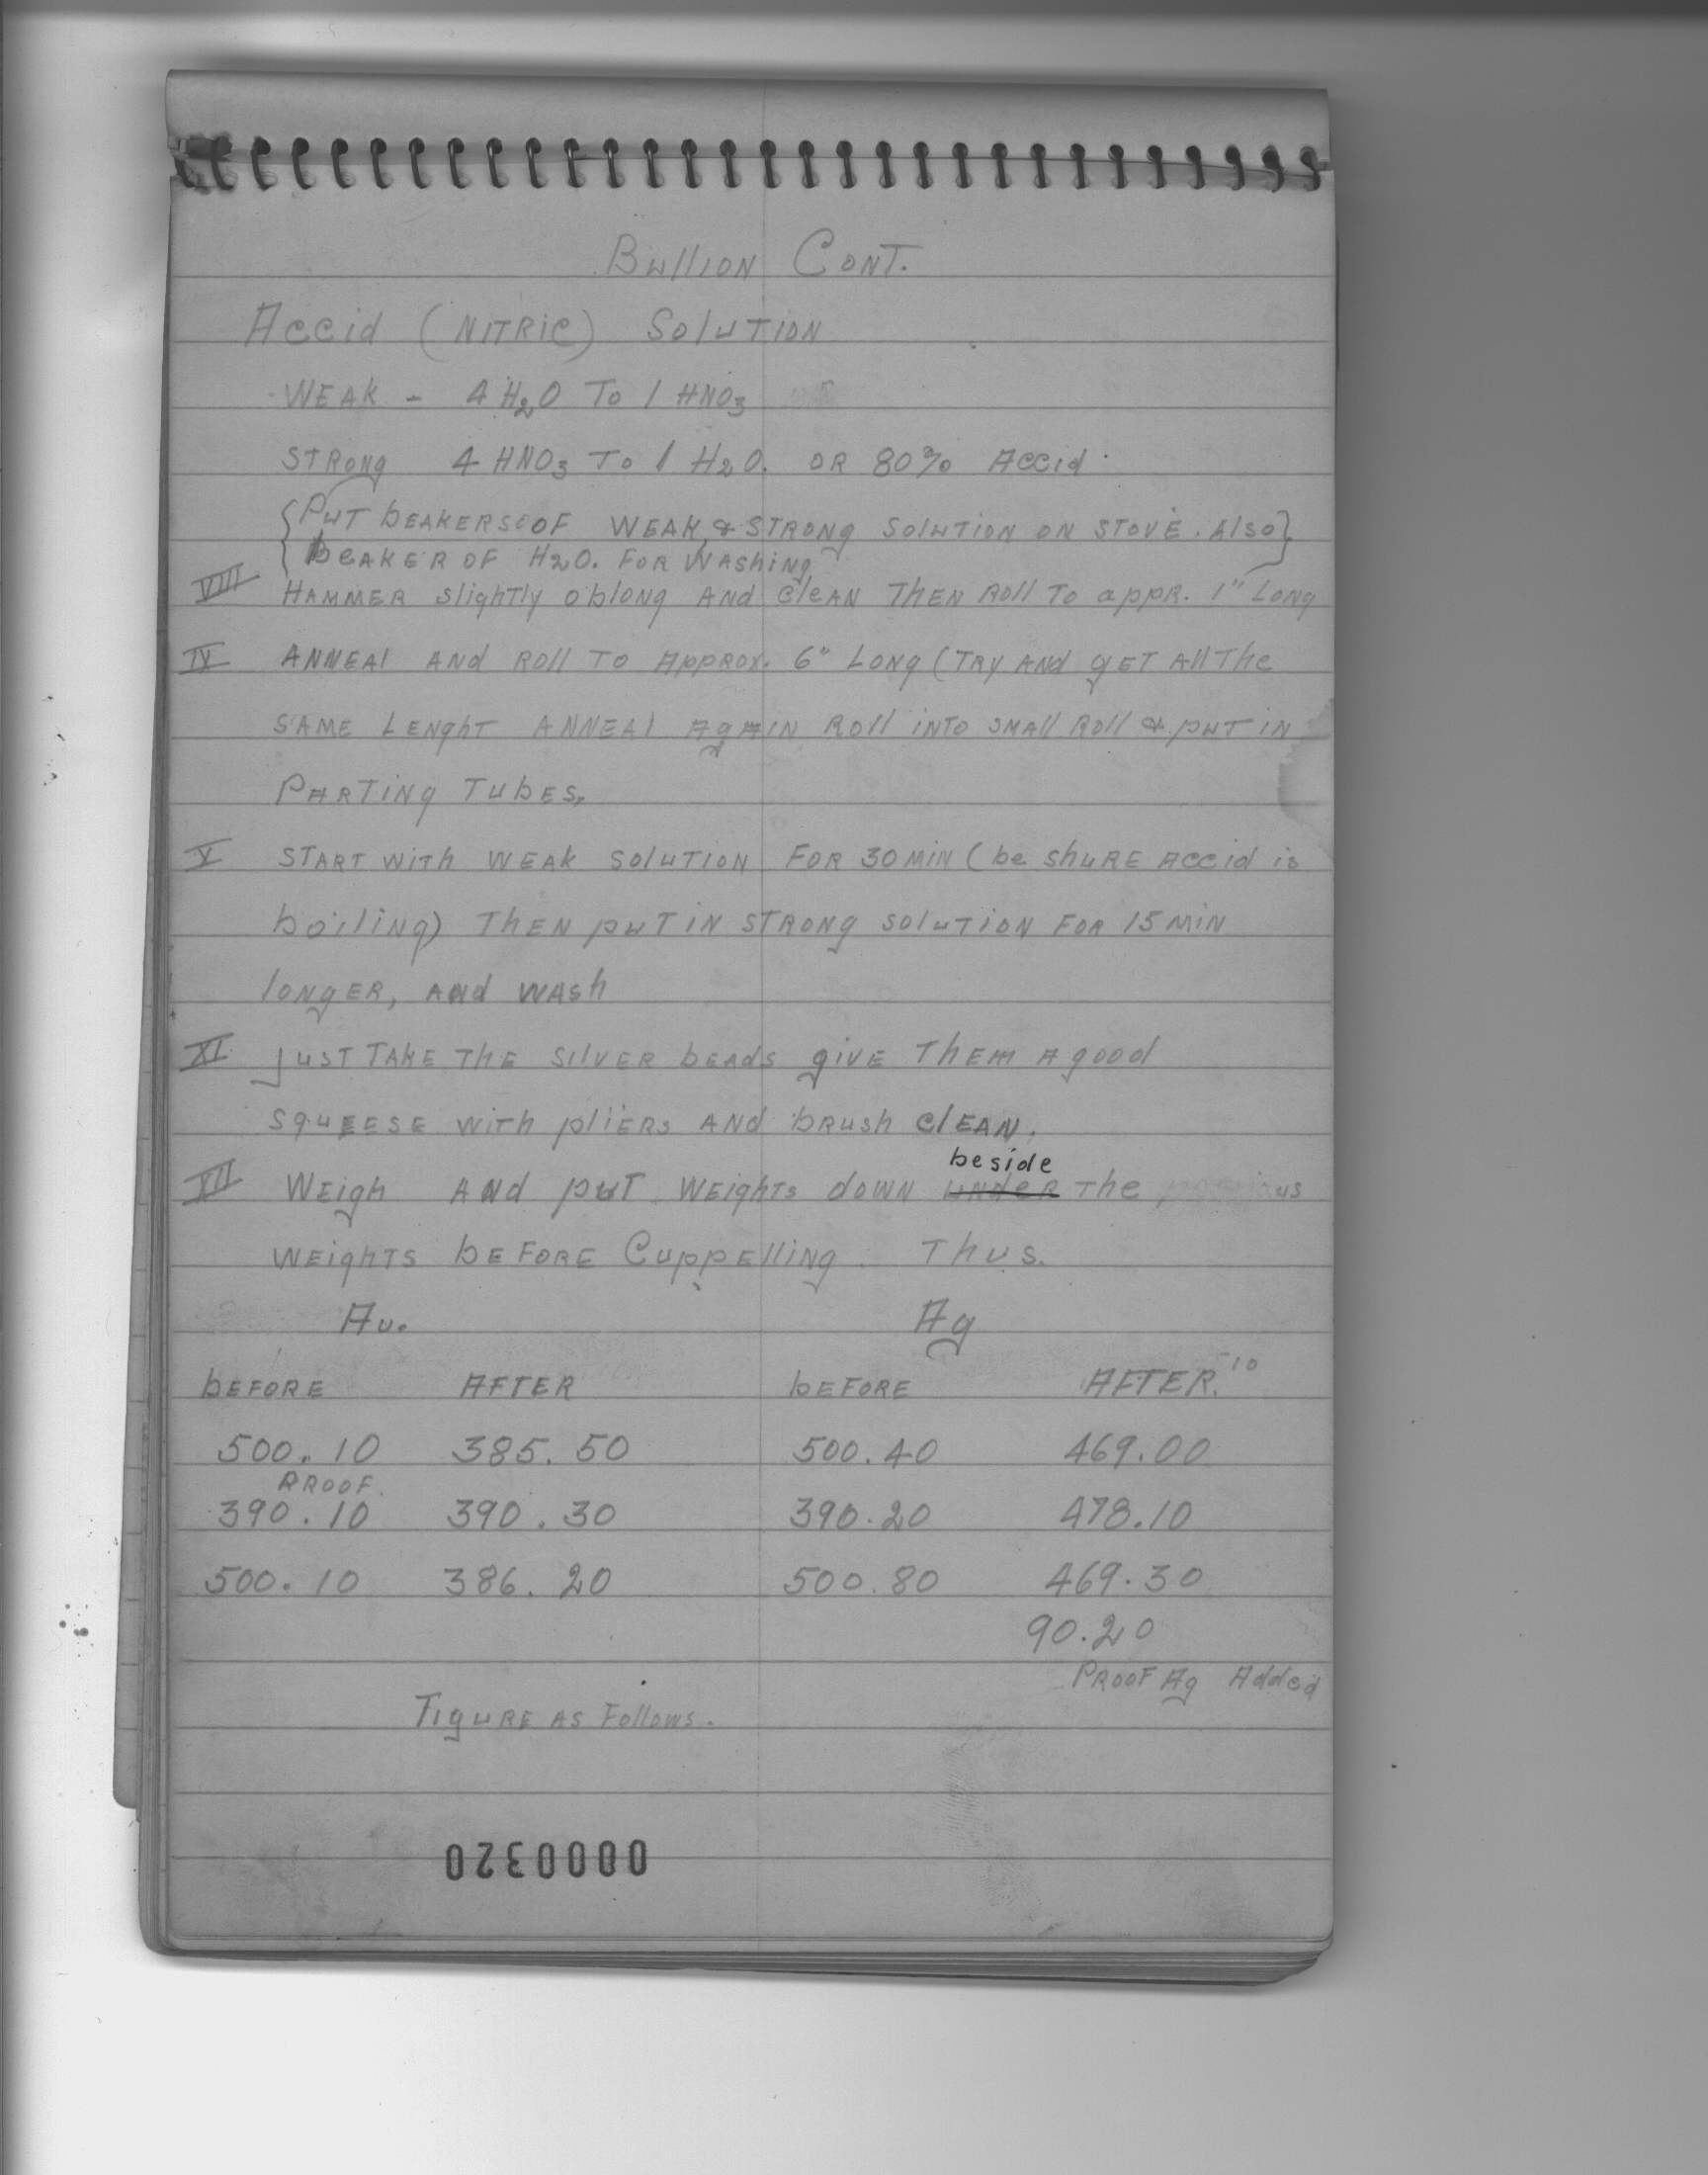 Bullion Cont.
Accid (Nitric) Solution
Weak - 4 H2O To 1 HNO3
Strong 4 HNO3 To 1 H2O. or 80% Accid.
{Put beakers of weak & strong solution on stove. Also}
Beaker of H2O. For Washing
VIII Hammer slightly oblong and clean then Roll To appr. 1" Long
IV Anneal and Roll to Approx. 6" Long (Try and get all the
same Lenght Anneal Again Roll into small Roll & put in
Parting Tubes.
V Start with weak solution for 30 min (be shure Accid is
boiling) Then put in strong solution for 15 min
longer, and wash
XI just take the silver beads give them a good
squeese with pliers and brush clean.
beside
XII Weigh and put weights down under the
weights before Cuppelling. Thus.
Au. Ag
before After before After. 10
500.10 385.50 500.40 469.00
Proof.
390.10 390.30 390.20 478.10
500.10 386.20 500.80 469.30
90.20
Proof Ag Added
Figure as Follows.
0000320